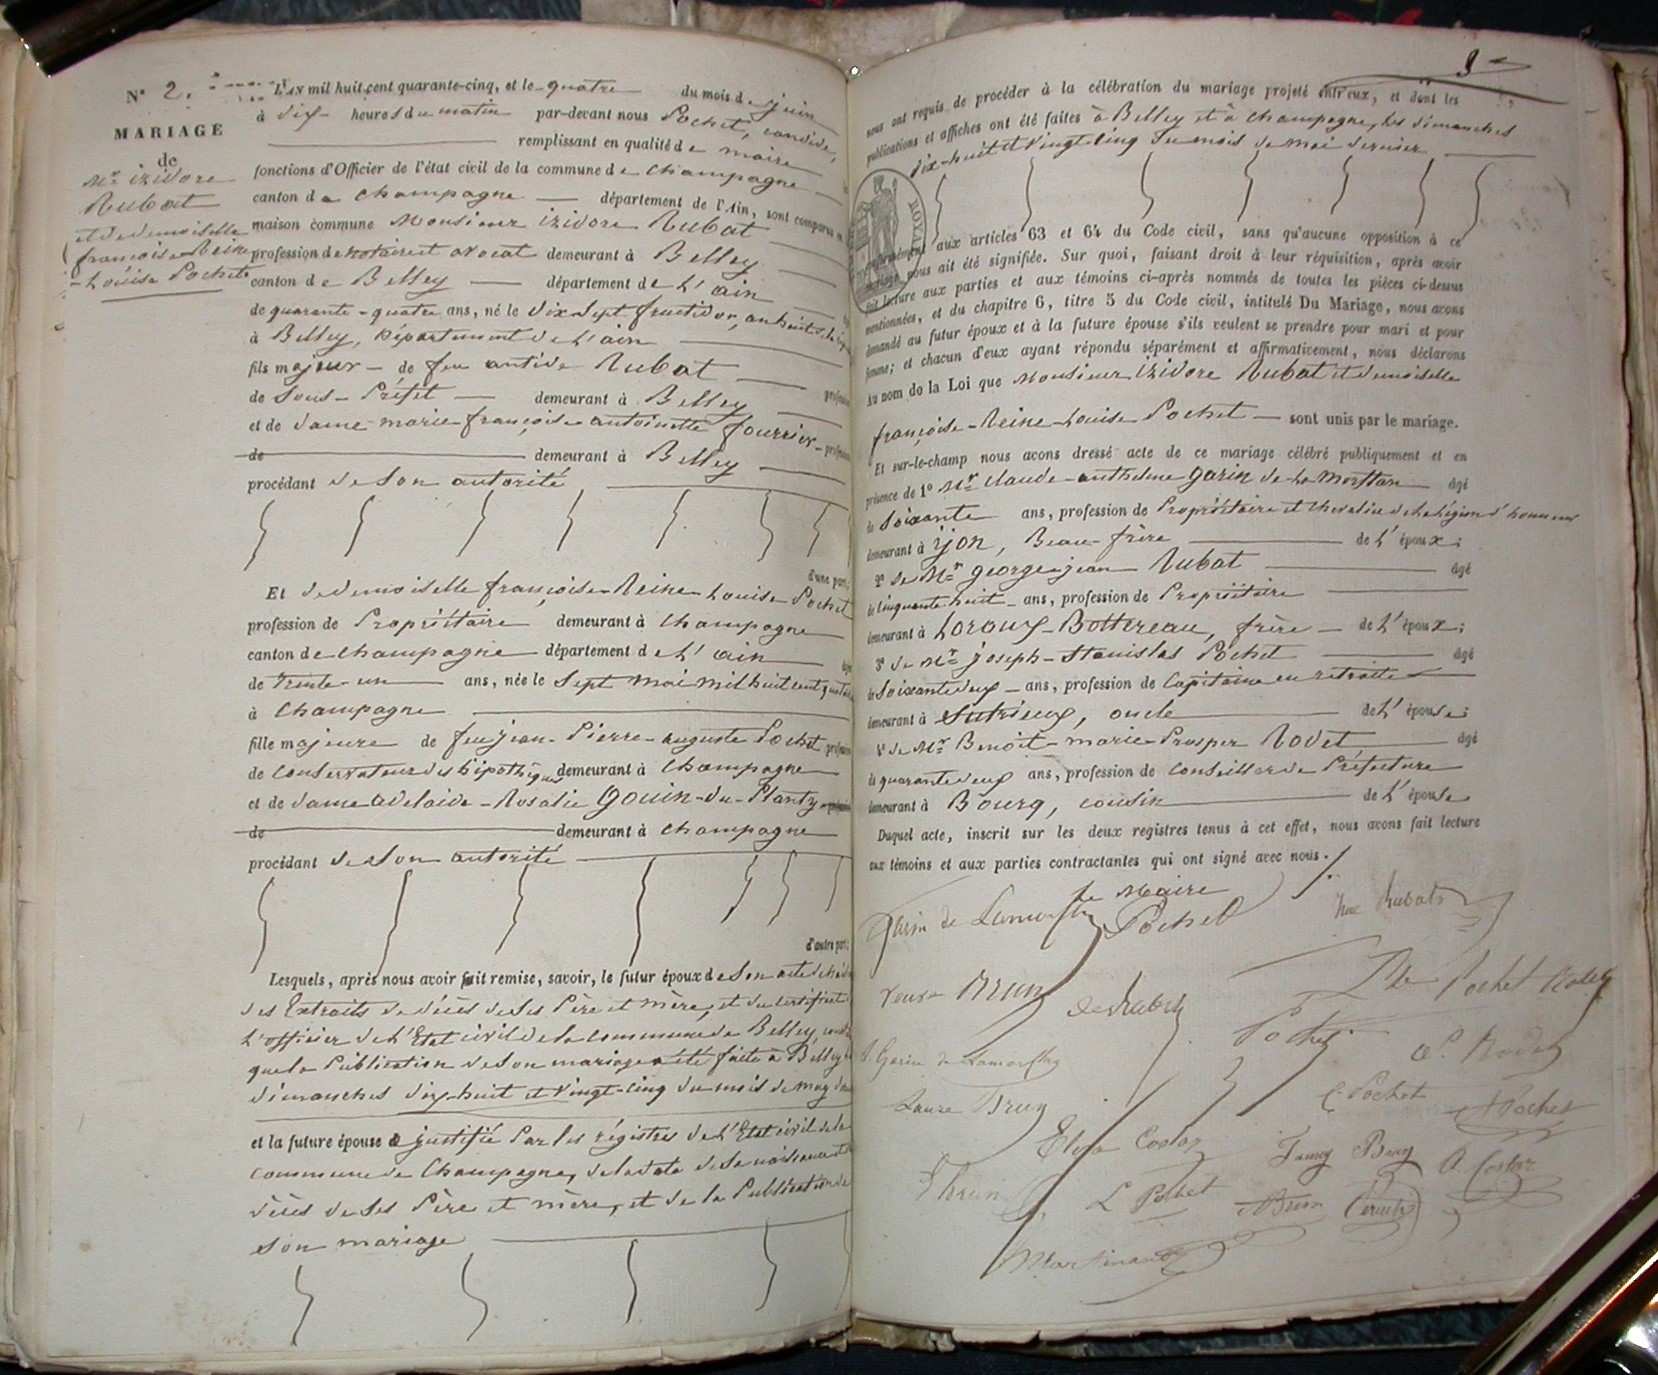 N° 2.
MARIAGE
de
Mr. izidore
Rubat
et de demoiselle
françoise Reine
Louise Pochet
L'AN mil huit cent quarante-cinq, et le quatre du mois de juin
à dix heures du matin par-devant nous Pochet,
remplissant en qualité de maire
fonctions d'Officier de l'état civil de la commune de Champagne
canton de Champagne département de l'Ain, sont comparus
maison commune Monsieur izidore Rubat
profession de notaire et avocat demeurant à Belley
canton de Belley département de l'ain
de quarante-quatre ans, né le dix sept fructidor, an huit
à Belley, Département de l'ain
fils majeur de feu antide Rubat
de Sous-Préfet demeurant à Belley
et de dame marie françoise antoinette fourrier
de demeurant à Belley
procédant de son autorité
d'une part;
Et de demoiselle françoise Reine Louise Pochet
profession de Propriétaire demeurant à Champagne
canton de Champagne département de l'ain
de trente-un ans, née le Sept mai mil huit cent
à Champagne
fille majeure de feu jean-Pierre-auguste Pochet
de Conservateur des hipothèques demeurant à Champagne
et de dame adelaide-Rosalie Gouin-du-Planty
de demeurant à Champagne
procédant de son autorité
d'autre part;
Lesquels, après nous avoir fait remise, savoir, le futur époux de son acte de
des Extraits de décès de ses Père et mère, et du certificat
l'officier de l'Etat civil de la commune de Belley,
que la Publication de son mariage a été faite à Belley
dimanches dix-huit et vingt-cinq du mois de may
et la future épouse a justifié Par les régistres de l'Etat civil de la
commune de Champagne, de la date de sa naissance
décès de ses Père et mère, et de la Publication de
son mariage
nous ont requis de procéder à la célébration du mariage projeté entr'eux, et dont les
publications et affiches ont été faites à Belley et à Champagne, les dimanches
dix-huit et vingt-cinq du mois de mai dernier
conformément aux articles 63 et 64 du Code civil, sans qu'aucune opposition à ce
mariage nous ait été signifiée. Sur quoi, faisant droit à leur réquisition, après avoir
fait lecture aux parties et aux témoins ci-après nommés de toutes les pièces ci-dessus
mentionnées, et du chapitre 6, titre 5 du Code civil, intitulé Du Mariage, nous avons
demandé au futur époux et à la future épouse s'ils veulent se prendre pour mari et pour
femme; et chacun d'eux ayant répondu séparément et affirmativement, nous déclarons
au nom de la Loi que Monsieur izidore Rubat et demoiselle
françoise-Reine-Louise Pochet sont unis par le mariage.
Et sur-le-champ nous avons dressé acte de ce mariage célébré publiquement et en
présence de 1° Mr Claude-anthelme Garin de La Morflan âgé
de soixante ans, profession de Propriétaire et chevalier de la Légion d'honneur
demeurant à ijon, Beau-frère de l'époux;
2° de Mr george jean Rubat âgé
de cinquante huit ans, profession de Propriétaire
demeurant à Loroux-Bottereau, frère de l'époux;
3° de Mr joseph-Stanislas Pochet âgé
de soixante deux ans, profession de Capitaine en retraite
demeurant à Sutrieux, oncle de l'épouse;
4° de Mr Benoit-marie-Prosper Rodet âgé
de quarante deux ans, profession de Conseiller de Préfecture
demeurant à Bourg, cousin de l'épouse
Duquel acte, inscrit sur les deux registres tenus à cet effet, nous avons fait lecture
aux témoins et aux parties contractantes qui ont signé avec nous.
Le Maire
Garin de Lamorflan Pochet Rubat
Brun Pochet Rodet
Pochet P. Rodet
Garin de Lamorflan
Laure Brun C. Pochet Pochet
Elisa Costaz Fanny Brun A. Costaz
Brun L Pochet Brun
Martinand